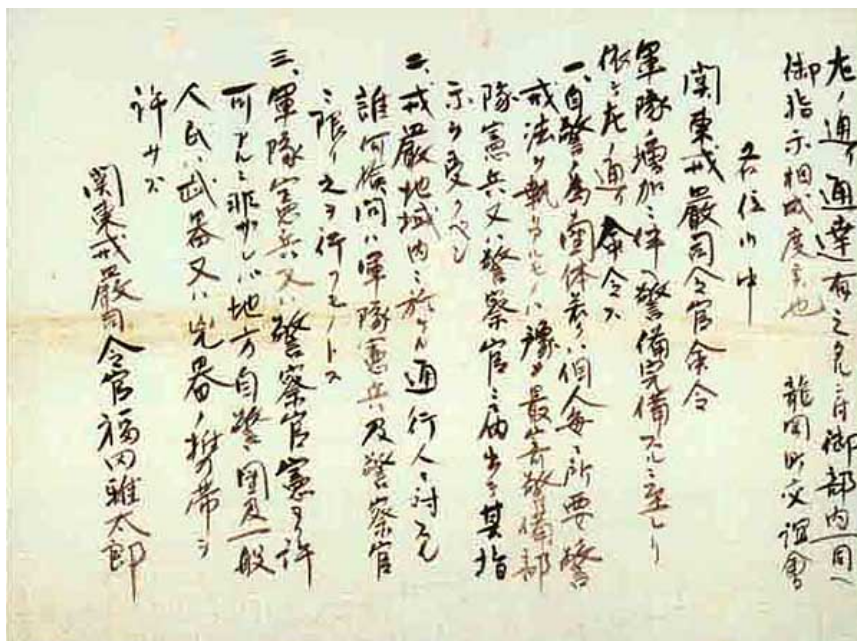 左ノ通リ通達有之候ニ付御部内一同ヘ
御指示相成度候也　龍岡町交誼會
各位御中
関東戒嚴司令官命令
軍隊ノ増加ニ伴ヒ警備完備スルニ至レリ
依テ左ノ通リ命令ス
一、自警ノ為團体若クハ個人毎ニ所要ノ警
戒法ヲ執リアルモノハ豫メ最寄警備部
隊憲兵又ハ警察官ニ届出テ其指
示ヲ受クベシ
二、戒嚴地域内ニ於ケル通行人ニ対スル
誰何検問ハ軍隊憲兵及警察官
ニ限リ之ヲ行フモノトス
三、軍隊憲兵又ハ警察官憲ヨリ許
可アルニ非ザレバ地方自警團及一般
人民ハ武器又ハ兇器ノ携帯ヲ
許サズ
関東戒嚴司令官福田雅太郎